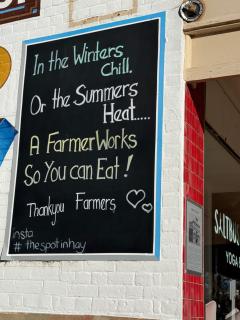 In the Winters
Chill.
Or the Summers
Heat....
A Farmer Works
So You can Eat!
Thankyou Farmers
insta
# thespotinhay
YOGA